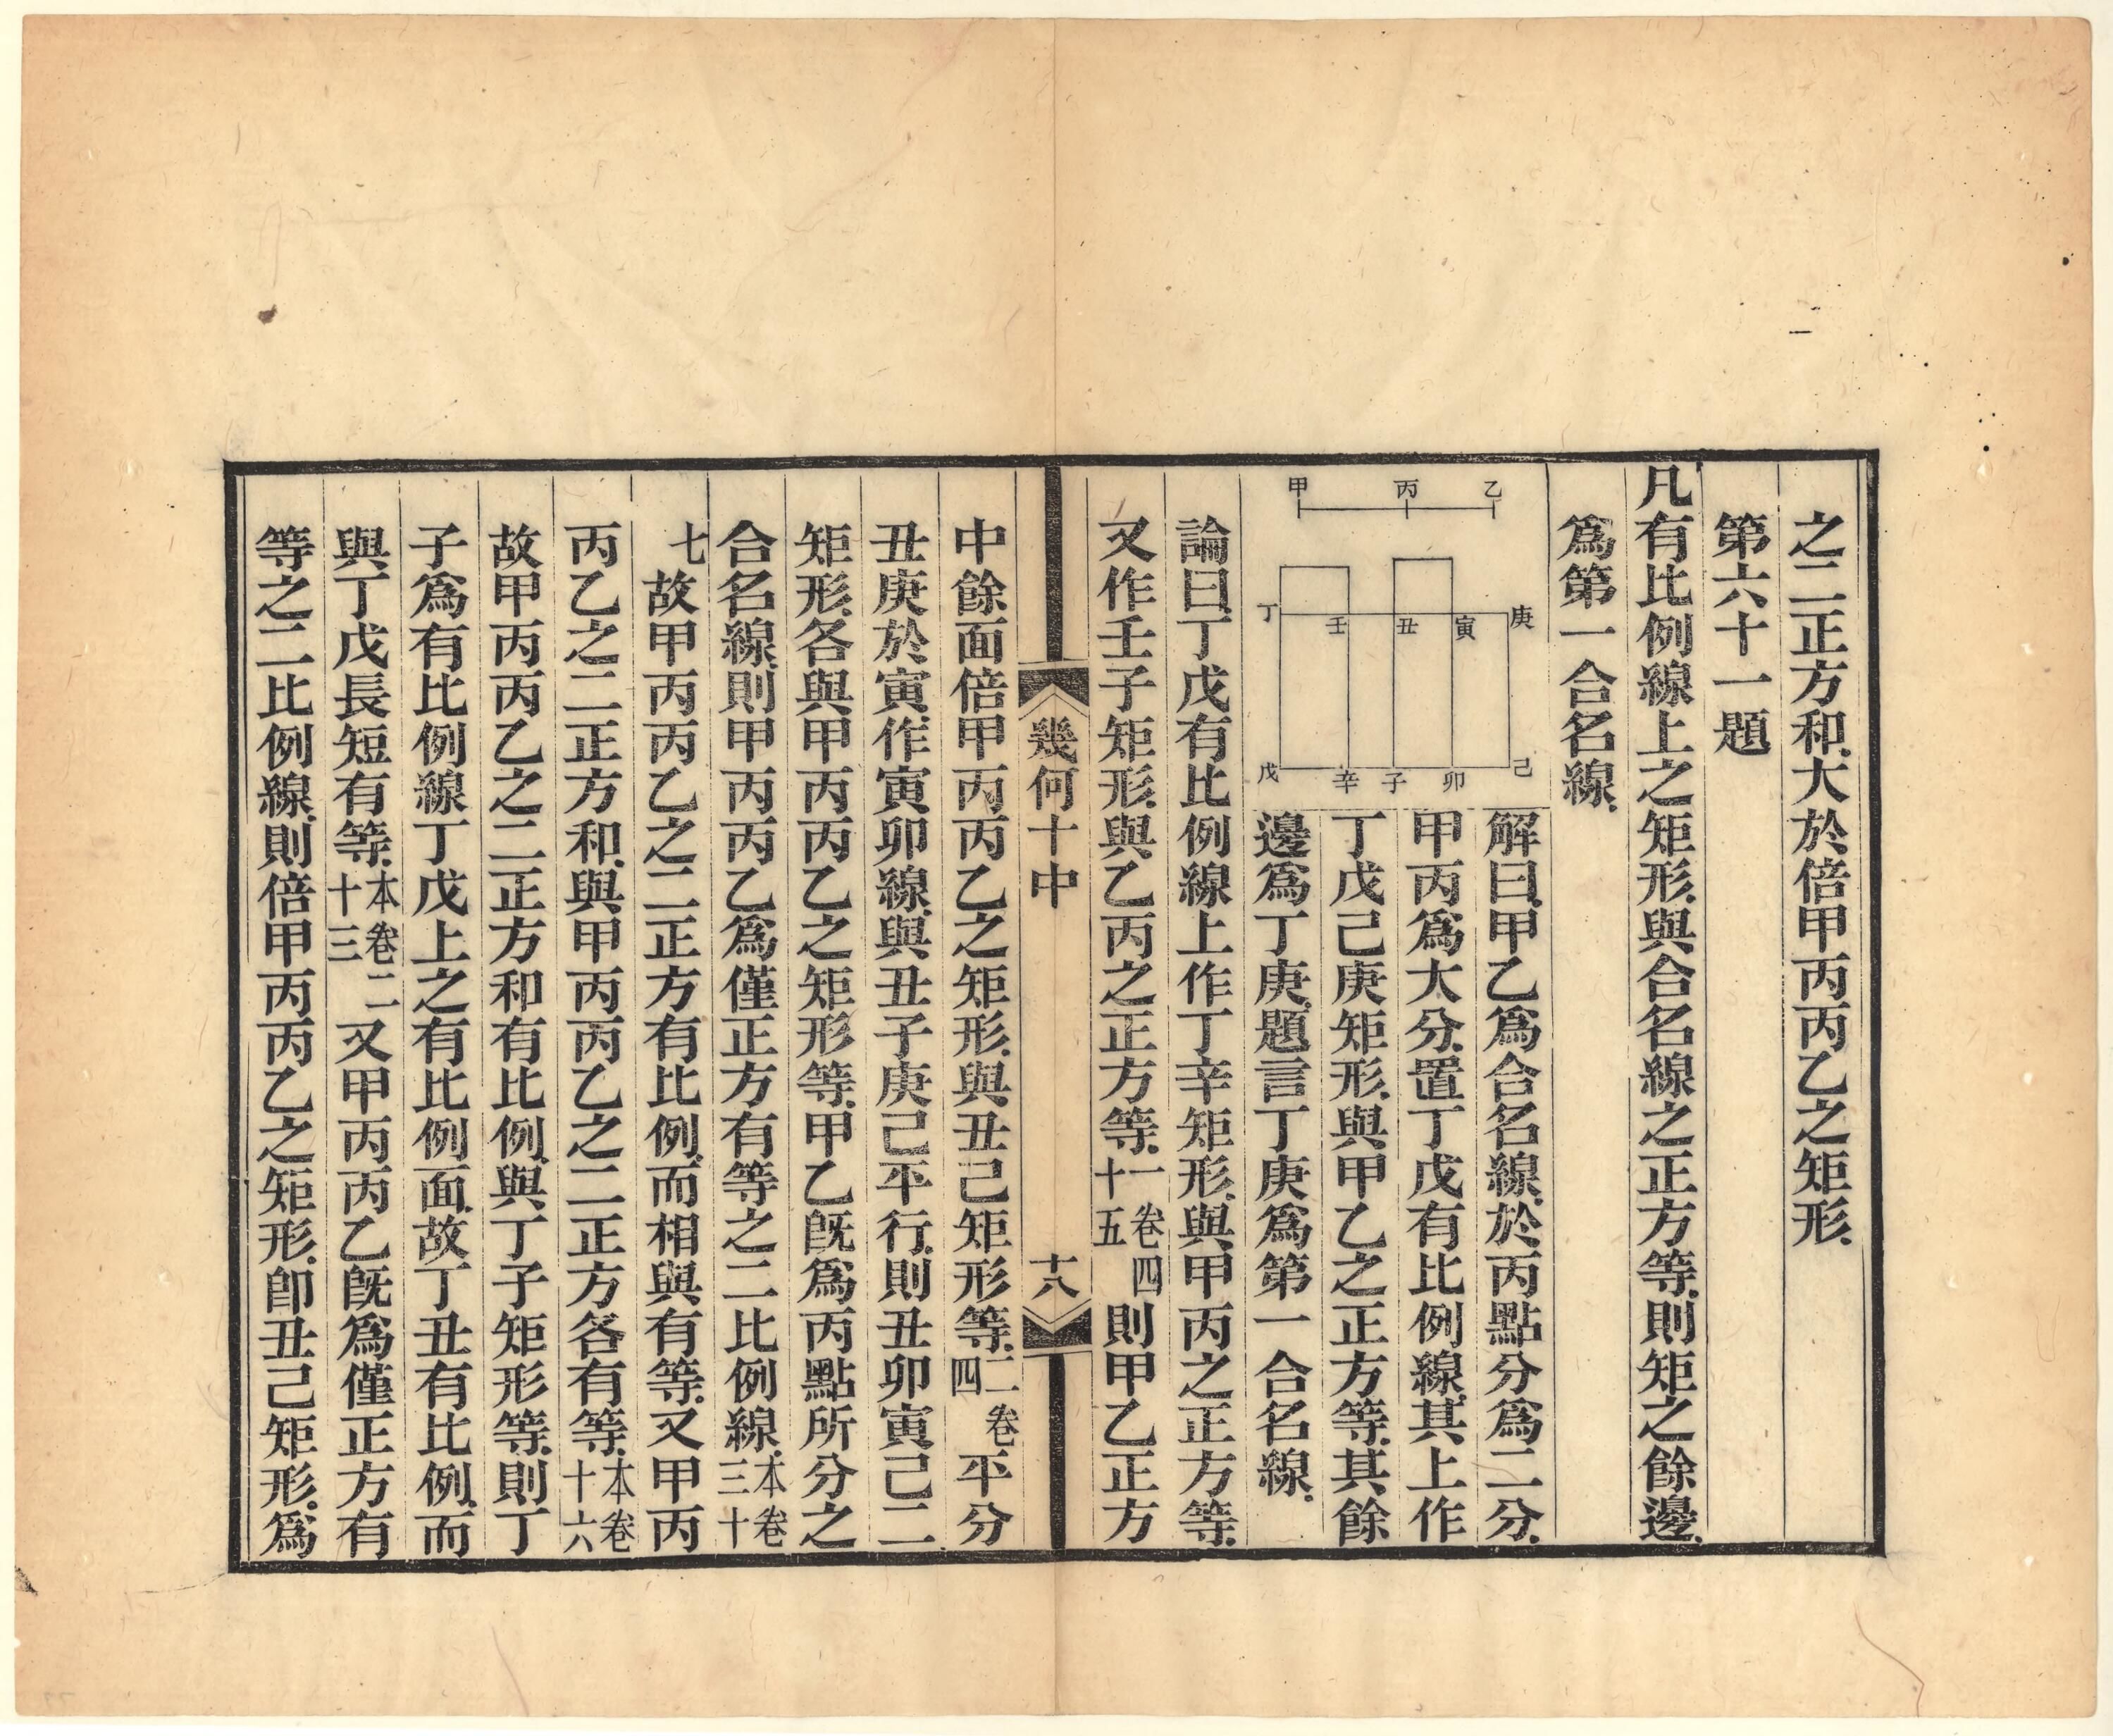 之二正方和大於倍甲丙丙乙之矩形
第六十一題
凡有比例線上之矩形與合名線之正方等則矩之餘邊
爲第一合名線
甲 丙 乙
丁 壬 丑 寅 庚
戊 辛 子 卯 己
解曰甲乙爲合名線於丙點分爲二分
甲丙爲大分置丁戊有比例線其上作
丁戊己庚矩形與甲乙之正方等其餘
邊爲丁庚題言丁庚爲第一合名線
論曰丁戊有比例線上作丁辛矩形與甲丙之正方等
又作壬子矩形與乙丙之正方等一卷四十五則甲乙正方
幾何十中 十八
中餘面倍甲丙丙乙之矩形與丑己矩形等二卷四平分
丑庚於寅作寅卯線與丑子庚己平行則丑卯寅己二
矩形各與甲丙丙乙之矩形等甲乙旣爲丙點所分之
合名線則甲丙丙乙爲僅正方有等之二比例線本卷三十
七故甲丙丙乙之二正方有比例而相與有等又甲丙
丙乙之二正方和與甲丙丙乙之二正方各有等本卷十六
故甲丙丙乙之二正方和有比例與丁子矩形等則丁
子爲有比例線丁戊上之有比例面故丁丑有比例而
與丁戊長短有等本卷二十三又甲丙丙乙旣爲僅正方有
等之二比例線則倍甲丙丙乙之矩形卽丑己矩形爲